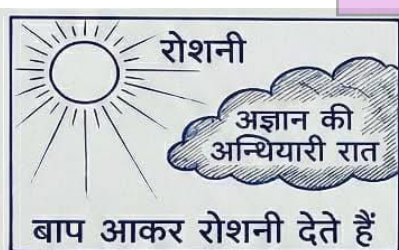 रोशनी
अज्ञान की
अन्धियारी रात
बाप आकर रोशनी देते हैं